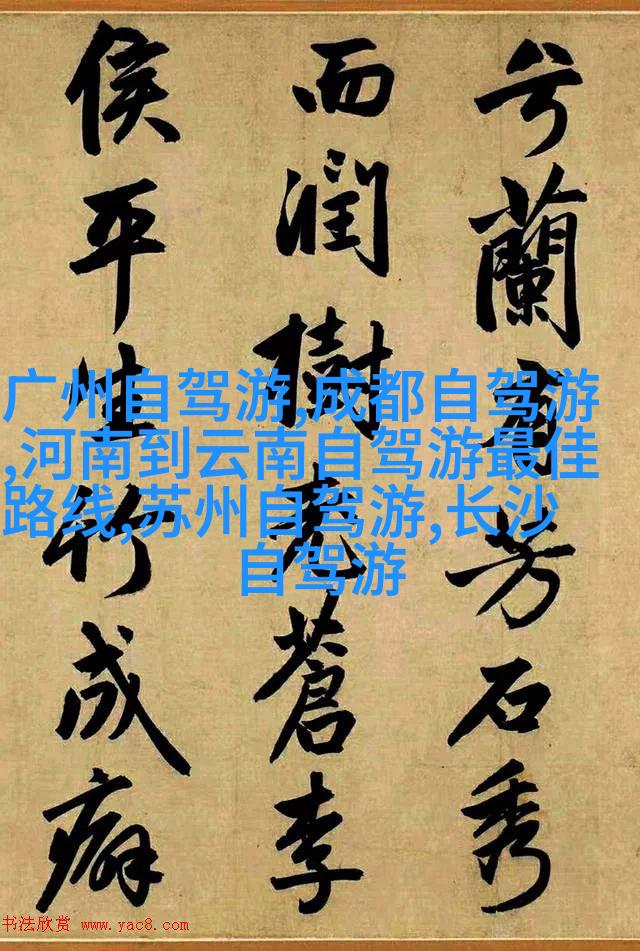 兮蘭有芳石秀
而潤樹老蒼李
侯平生竹成癖
广州自驾游,成都自驾游
,河南到云南自驾游最佳
路线,苏州自驾游,长沙
自驾游
书法欣赏 www.yac8.com